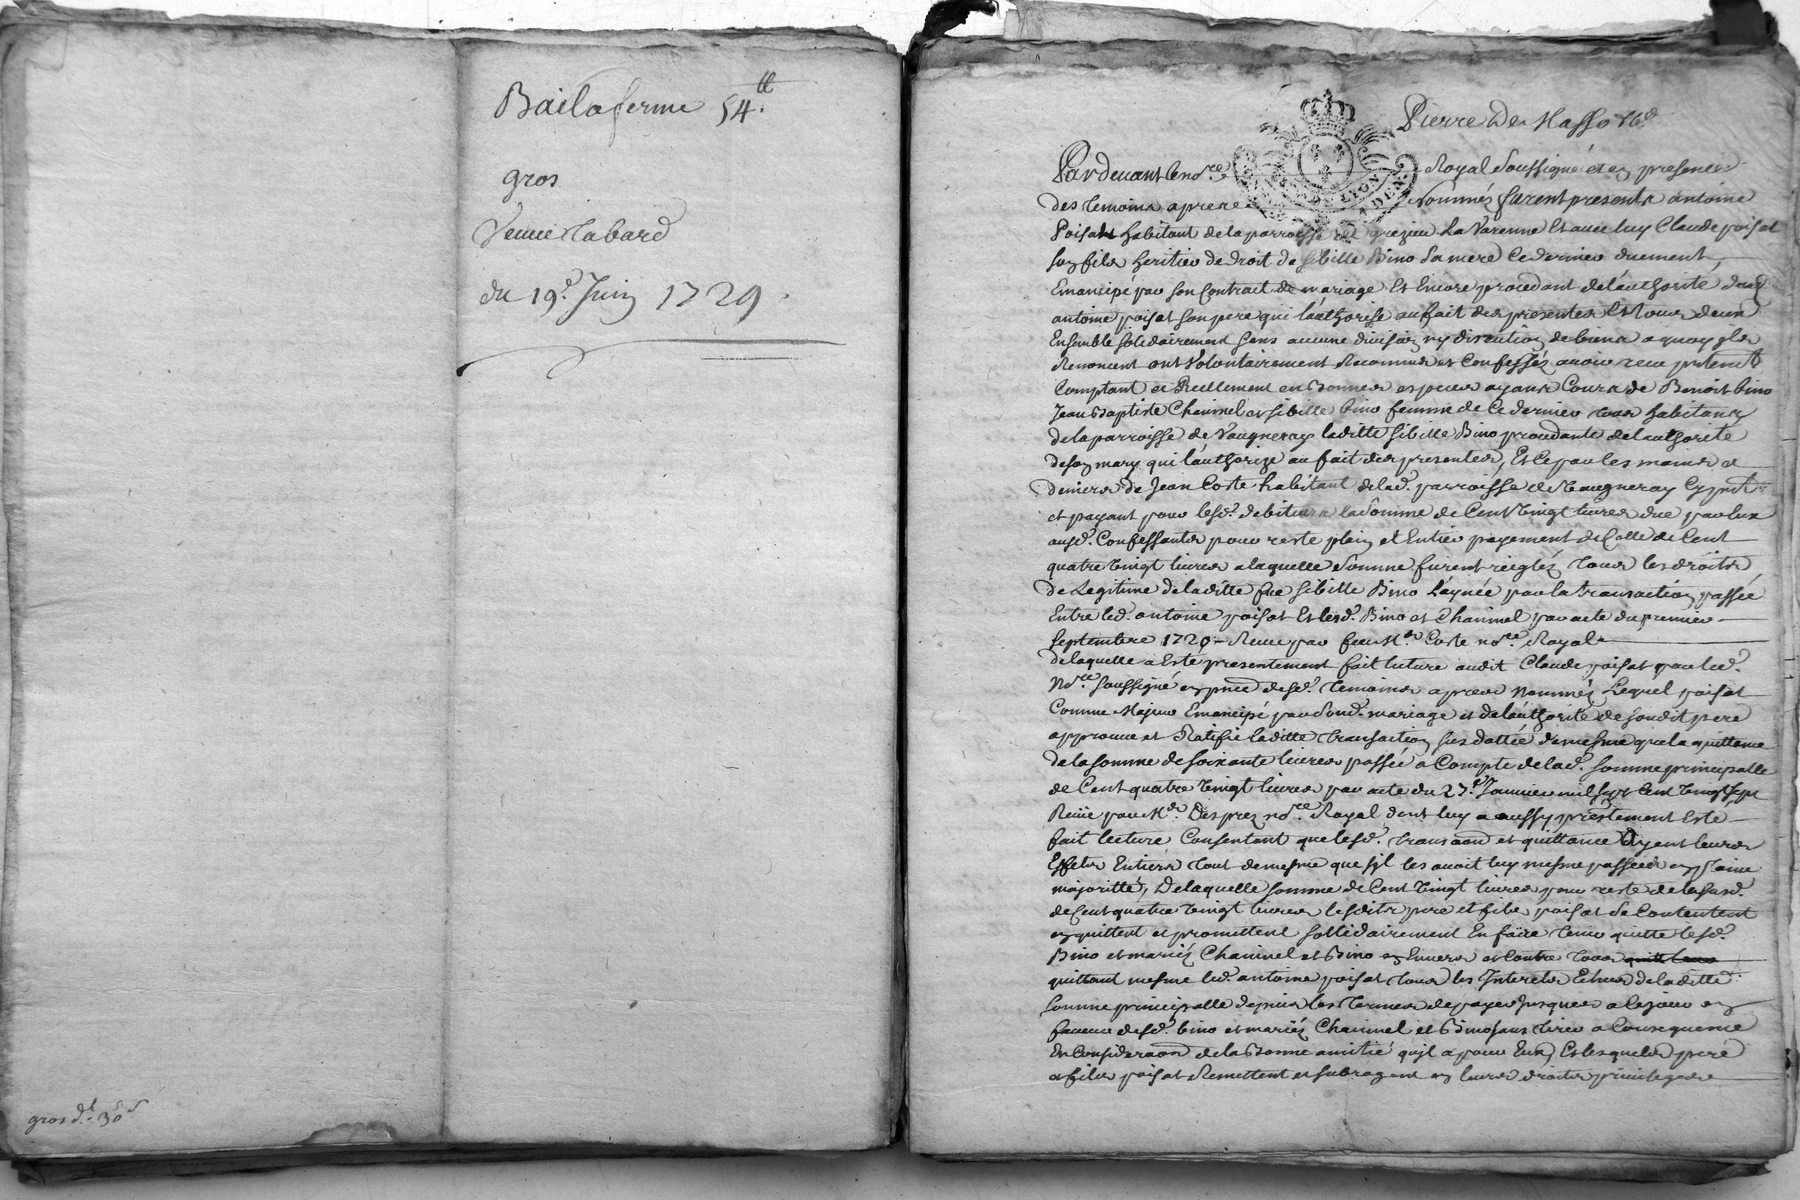 Bail a ferme 54.tt
gros
Veuve Tabard
du 19.e Juin 1729.
gros d.t 30 s
Pierre De
LYON
Pardevant le no.re Royal soussigné et en presence
des temoins apres nommés furent presents antoine
Poisat habitant de la parroisse de grezieu La Varenne Et avec luy Claude poisat
son fils heritier de droit de sibille Bino sa mere Ce dernier duement
Emancipé par son Contrait de mariage Et Encore procedant de l'authorité dud.
antoine poisat son pere qui l'authorise au fait des presentes Et tous deux
Ensemble solidairement sans aucune division ny discution de biens a quoy ils
Renoncent ont Volontairement Reconnus et Confessés avoir receu pntemt
Comptant et Reellement en bonnes especes ayants Cours de Benoit bino
Jean Baptiste Chaninel et sibille bino femme de Ce dernier tous habitants
de la parroisse de Vaugneray laditte sibille Bino procedante de l'authorité
de son mary qui l'authorize au fait des presentes, Et Ce par les mains et
deniers de Jean Coste habitant de lad. parroisse de Vaugneray Cy pnt
et payant pour lesd. debiteurs la somme de Cent Vingt livres due par eux
ausd. Confessants pour reste plein et Entier payement de Celle de Cent
quatre Vingt livres a laquelle somme furent reiglés tous les droits
de Legitime de laditte feue sibille Bino L'aynée par la transaction passée
Entre led. antoine poisat Et lesd. Bino et Chaninel par acte du premier
septembre 1720 Receu par feu M.e Coste no.re Royal
de laquelle a Esté presentement fait lecture audit Claude poisat par led.
No.re soussigné en pnce desd. temoins apres nommés Lequel poisat
Comme Majeur Emancipé par sond. mariage et de l'authorité de sondit pere
approuve et Ratifie laditte transaction sus dattée de mesme que la quittance
de la somme de soixante livres passée a Compte de lad. somme principalle
de Cent quatre Vingt livres par acte du 27.e Janvier mil sept Cent Vingt sept
Receüe par M.e Desprez no.re Royal dont luy a aussy pntement Esté
fait lecture Consentant que lesd. transaon et quittance Ayent leurs
Effets Entiers tout de mesme que s'il les avoit luy mesme passées en plaine
majoritté, De laquelle somme de Cent Vingt livres pour reste de la susd.
de Cent quatre Vingt livres lesdits pere et fils poisat se Contentent
en quittent et promettent sollidairement En faire tenir quitte lesd.
Bino et mariés Chaninel et Bino Envers et Contre tous
quittant mesme led. antoine poisat tous les Interets Echus de laditte
somme principalle depuis les termes de payer Jusques a Ce jour en
faveur desd. bino et mariés Chaninel et Bino sans tirer a Consequence
En Consideraon de la Bonne amitié qu'il a pour Eux, Et lesquels pere
et fils poisat Remettent et subrogent en leurs droits privileges